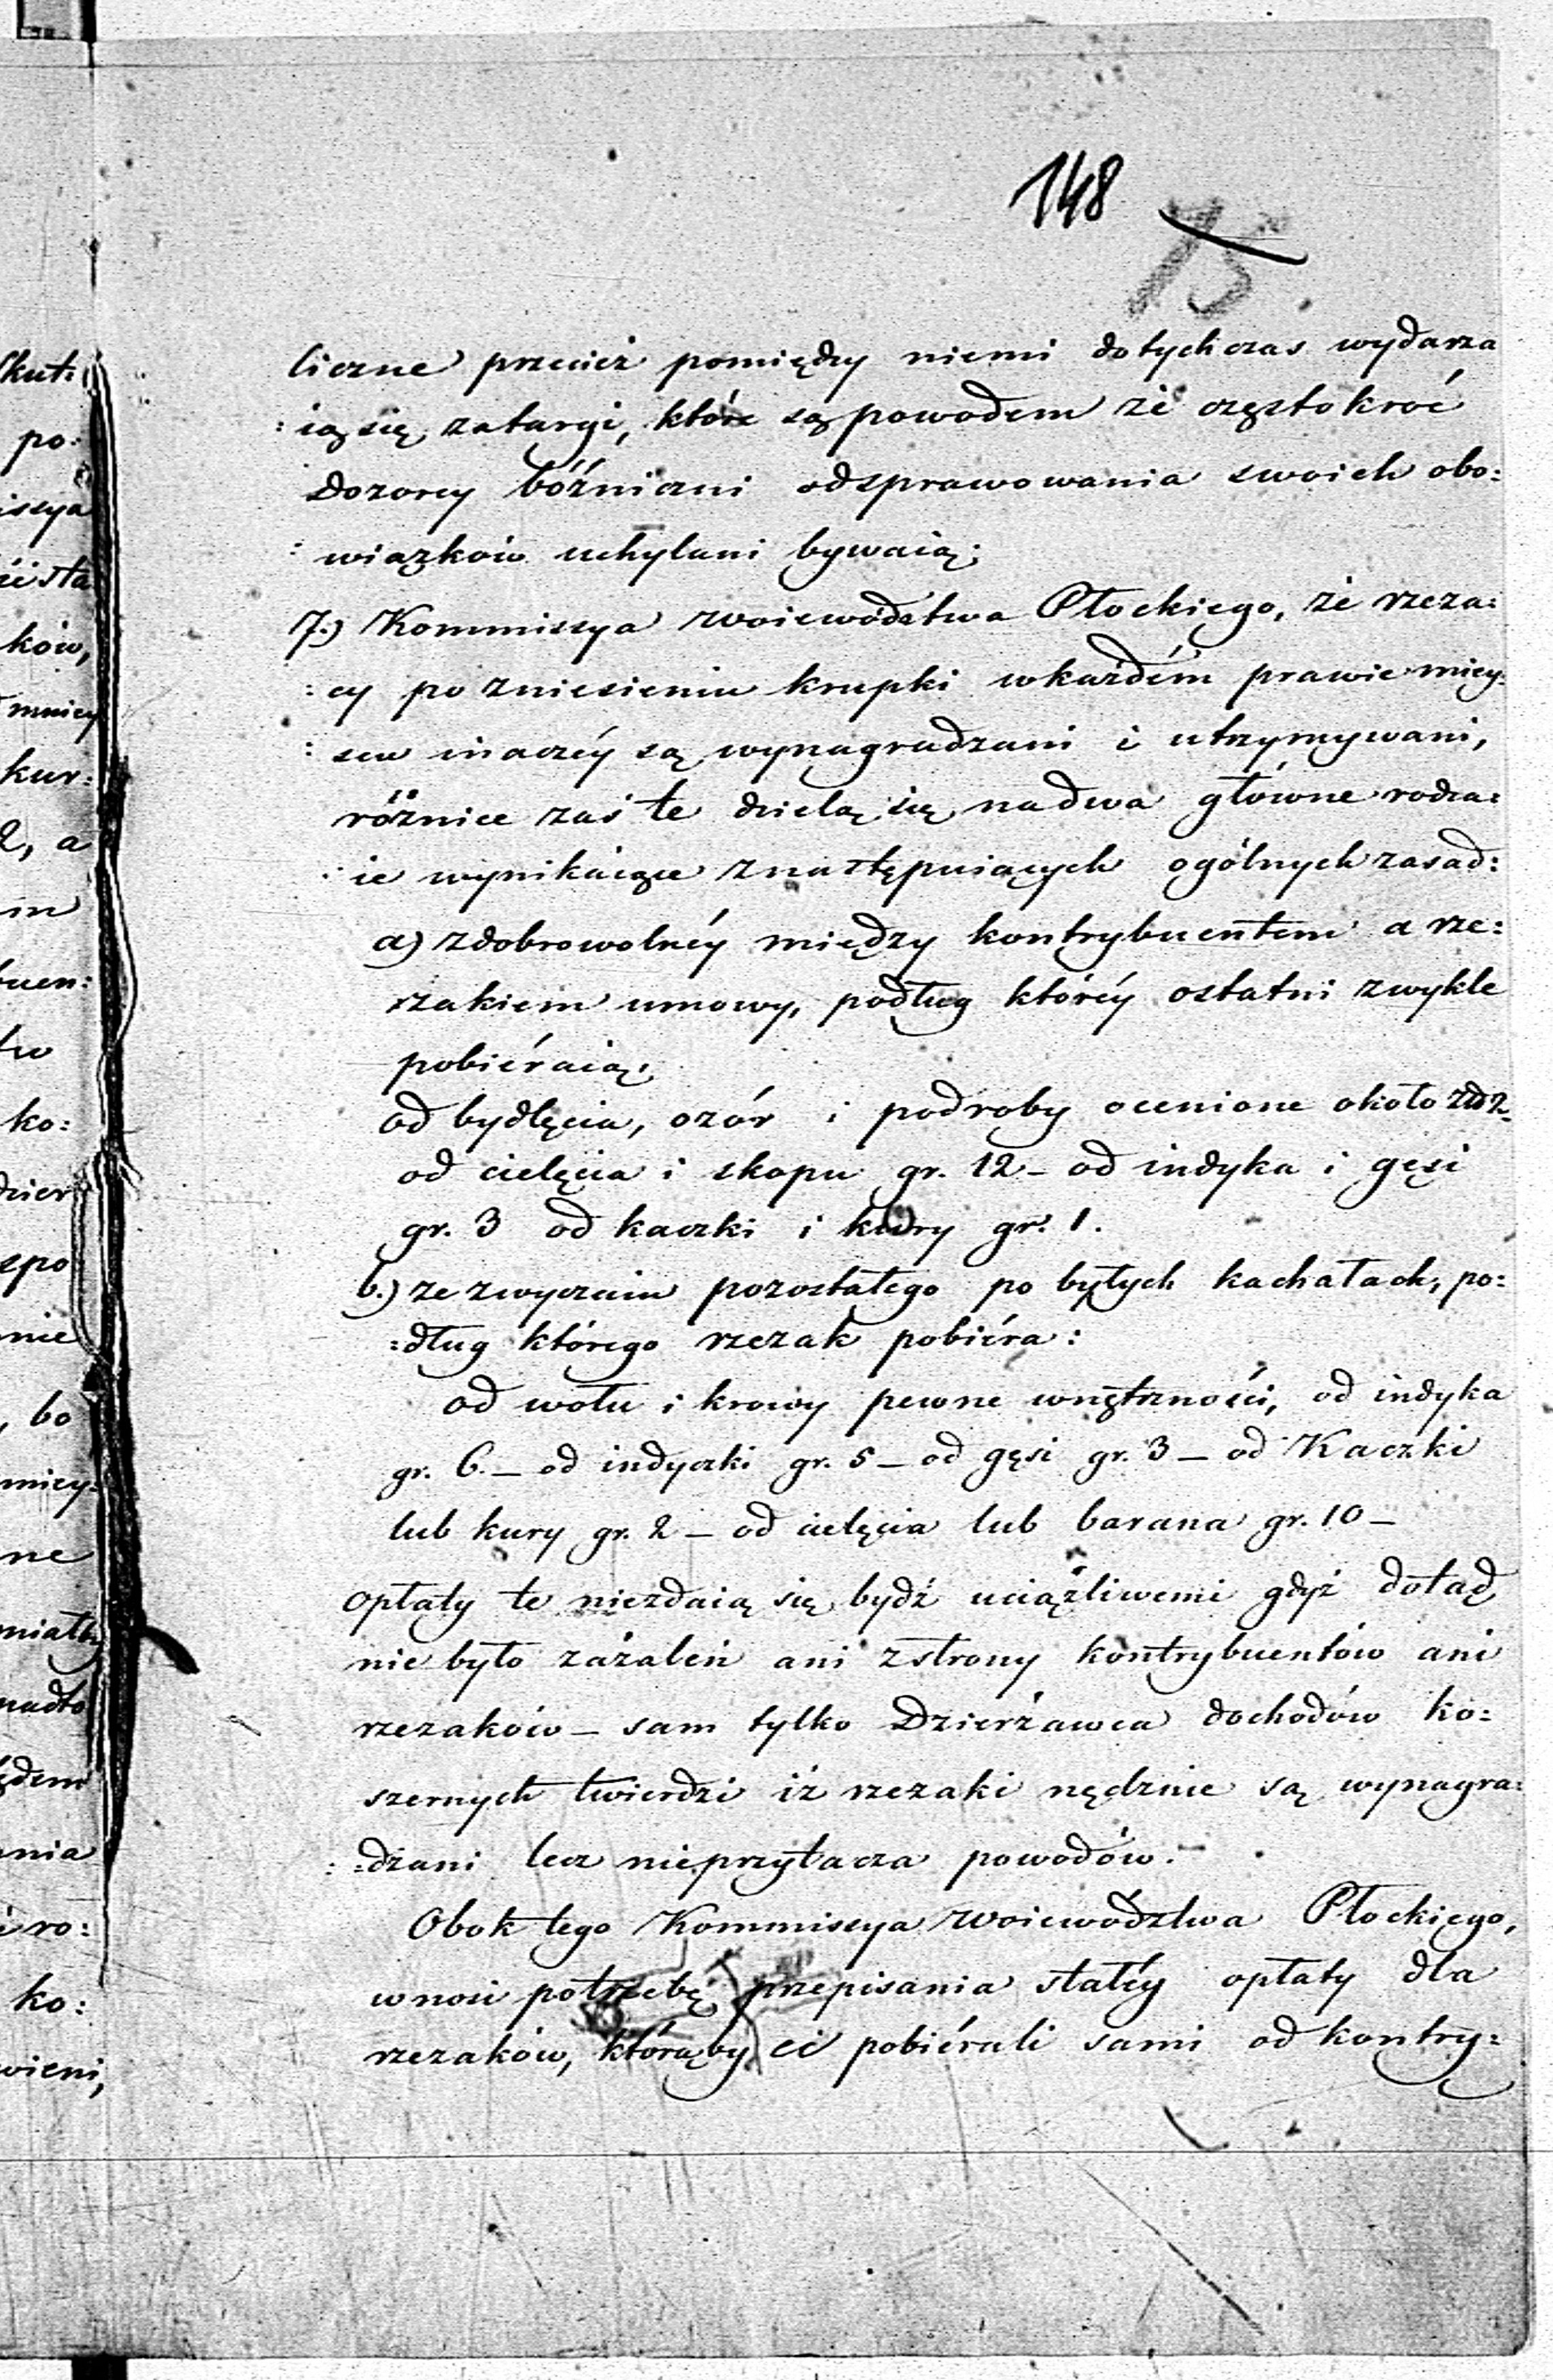 148
15
liczne przecież pomiędzy niemi dotychczas wydarza
:ią się zatargi, które są powodem że częstokroć
Dozorcy bóźniczni od sprawowania swoich obo:
:wiązków uchylani bywaią;
7.) Kommissya Woiewództwa Płockiego, że rzeza:
:cy po zniesieniu krupki w każdém prawie miey:
:scu inaczéy są wynagradzani i utrzymywani,
różnice zaś te dzielą się na dwa główne rodza:
:ie wynikaiące z następuiących ogólnych zasad:
a) z dobrowolnéy między kontrybuentem a rze:
rzakiem umowy, podług któréy ostatni zwykle
pobiéraią,
od bydlęcia, ozór i podroby ocenione około złt 2
od cielęcia i skopu gr. 12 – od indyka i gęsi
gr. 3 od kaczki i kury gr. 1.
b.) ze zwyczaiu pozostałego po byłych kachałach, po:
:dług którego rzezak pobiéra:
od wołu i krowy pewne wnętrzności, od indyka
gr. 6. – od indyczki gr. 5 – od gęsi gr. 3 – od Kaczki
lub kury gr. 2 – od cielęcia lub barana gr. 10 –
Opłaty te niezdaią się bydź uciążliwemi gdyż dotąd
nie było zażaleń ani z strony kontrybuentów ani
rzezaków – sam tylko Dzierżawca dochodów ko:
szernych twierdzi iż rzezaki nędznie są wynagra:
:dzani lecz nieprzytacza powodów. –
Obok tego Kommissya Woiewództwa Płockiego,
wnosi potrzebę przepisania stałéy opłaty dla
rzezaków, którąby ci pobiérali sami od kontry: